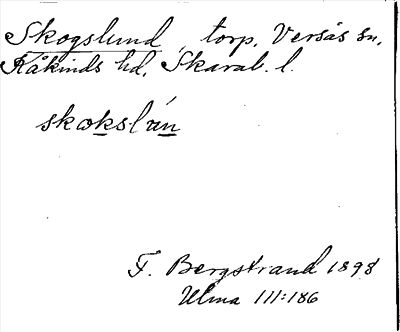 Skogslund, torp, Versås sn,
Kåkinds hd, Skarab. l.
skokslún
F. Bergstrand 1898
Ulma 111:186